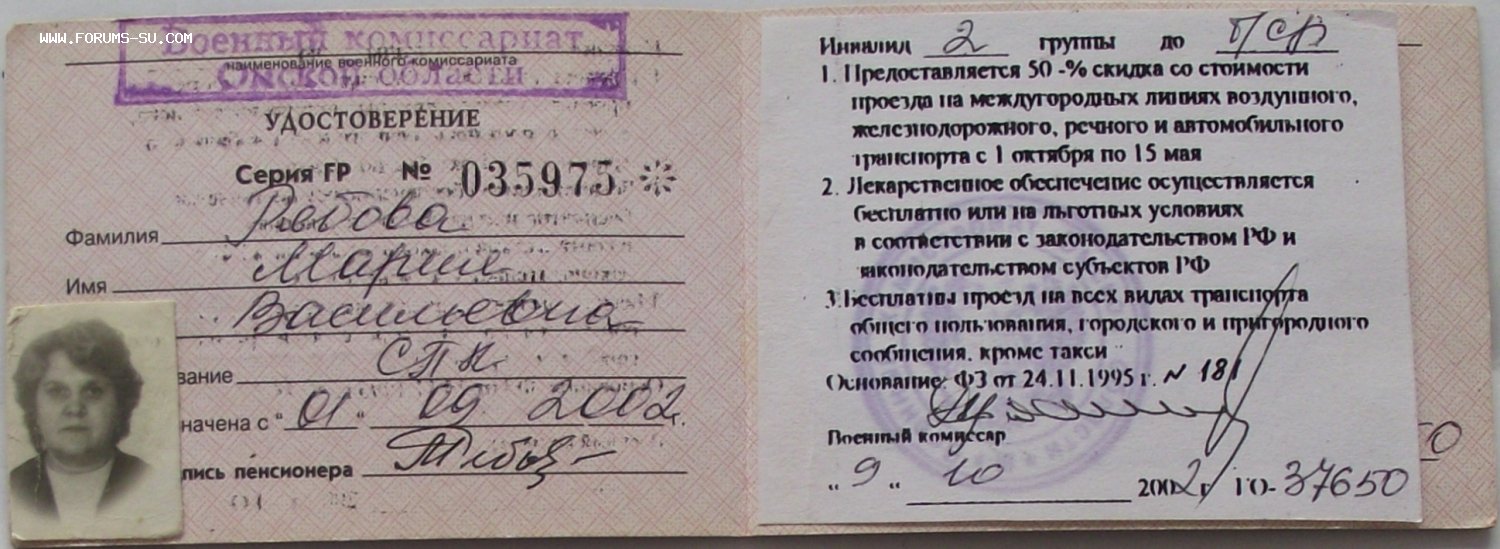 WWW.FORUMS-SU.COM
Военный комиссариат
наименование военного комиссариата
Омской области
УДОСТОВЕРЕНИЕ
Серия FP № 035975
Фамилия
Имя Мария
Васильевна
вание СПК.
начена с "01" 09 2002г.
пись пенсионера
Инвалид 2 группы до б/срв
1. Предоставляется 50 -% скидка со стоимости
проезда на междугородных линиях воздушного,
железнодорожного, речного и автомобильного
транспорта с 1 октября по 15 мая
2. Лекарственное обеспечение осуществляется
бесплатно или на льготных условиях
в соответствии с законодательством РФ и
законодательством субъектов РФ
3. Бесплатны проезд на всех видах транспорта
общего пользования, городского и пригородного
сообщения, кроме такси
Основание: ФЗ от 24.11.1995 г. № 181
Военный комиссар
" 9 " 10 2002г ГО-37650